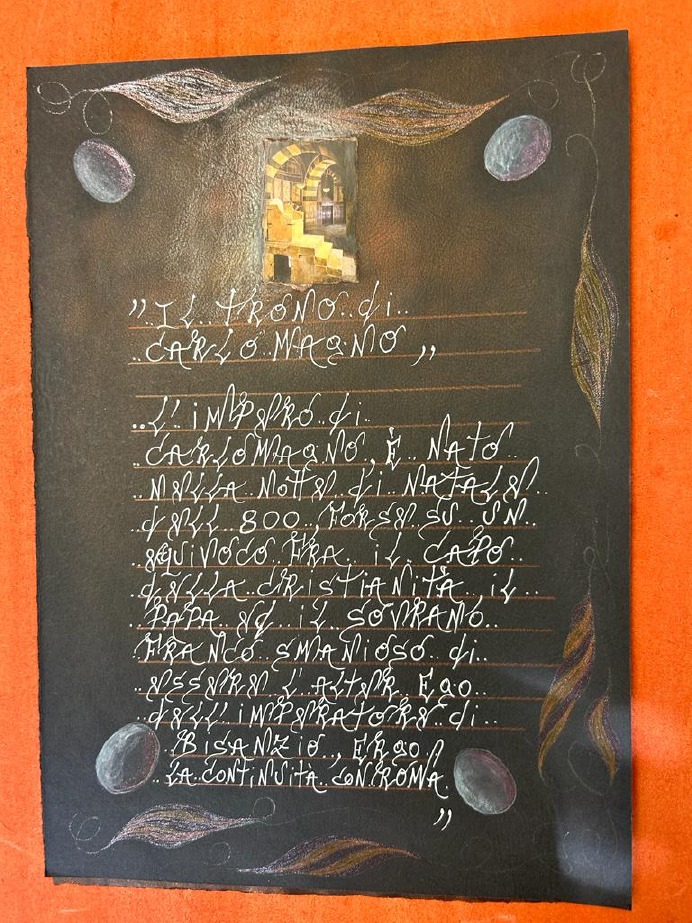 "..IL..TRONO..di..
..CARLO..MAGNO.."
..L'..IMPERO..di..
..CARLOMAGNO..È..NATO..
..NELLA..NOTTE..di..NATALE..
..dELL..800..,FORSE..SU..UN..
..EQUIVOCO..FRA..iL..CAPO..
..dELLA..CRISTIANITÀ..iL..
..PAPA..Ed..iL..SOVRANO..
..FRANCO..SMANIOSO..di..
..ESSERE..L'ALTER..EGO..
..dELL'..IMPERATORE..di..
..BISANZIO..,ERGO..
..LA..CONTINUITA..CON..ROMA..
"